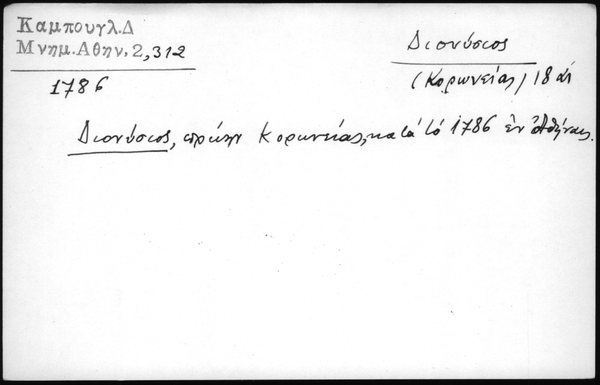 Καμπουγλ.Δ
Μνημ.Αθην,2,312
Διονύσιος
(Κορωνείας) 18 αἰ
1786
Διονύσιος, πρώην Κορωνείας, κατά τό 1786 ἐν Ἀθήναις.